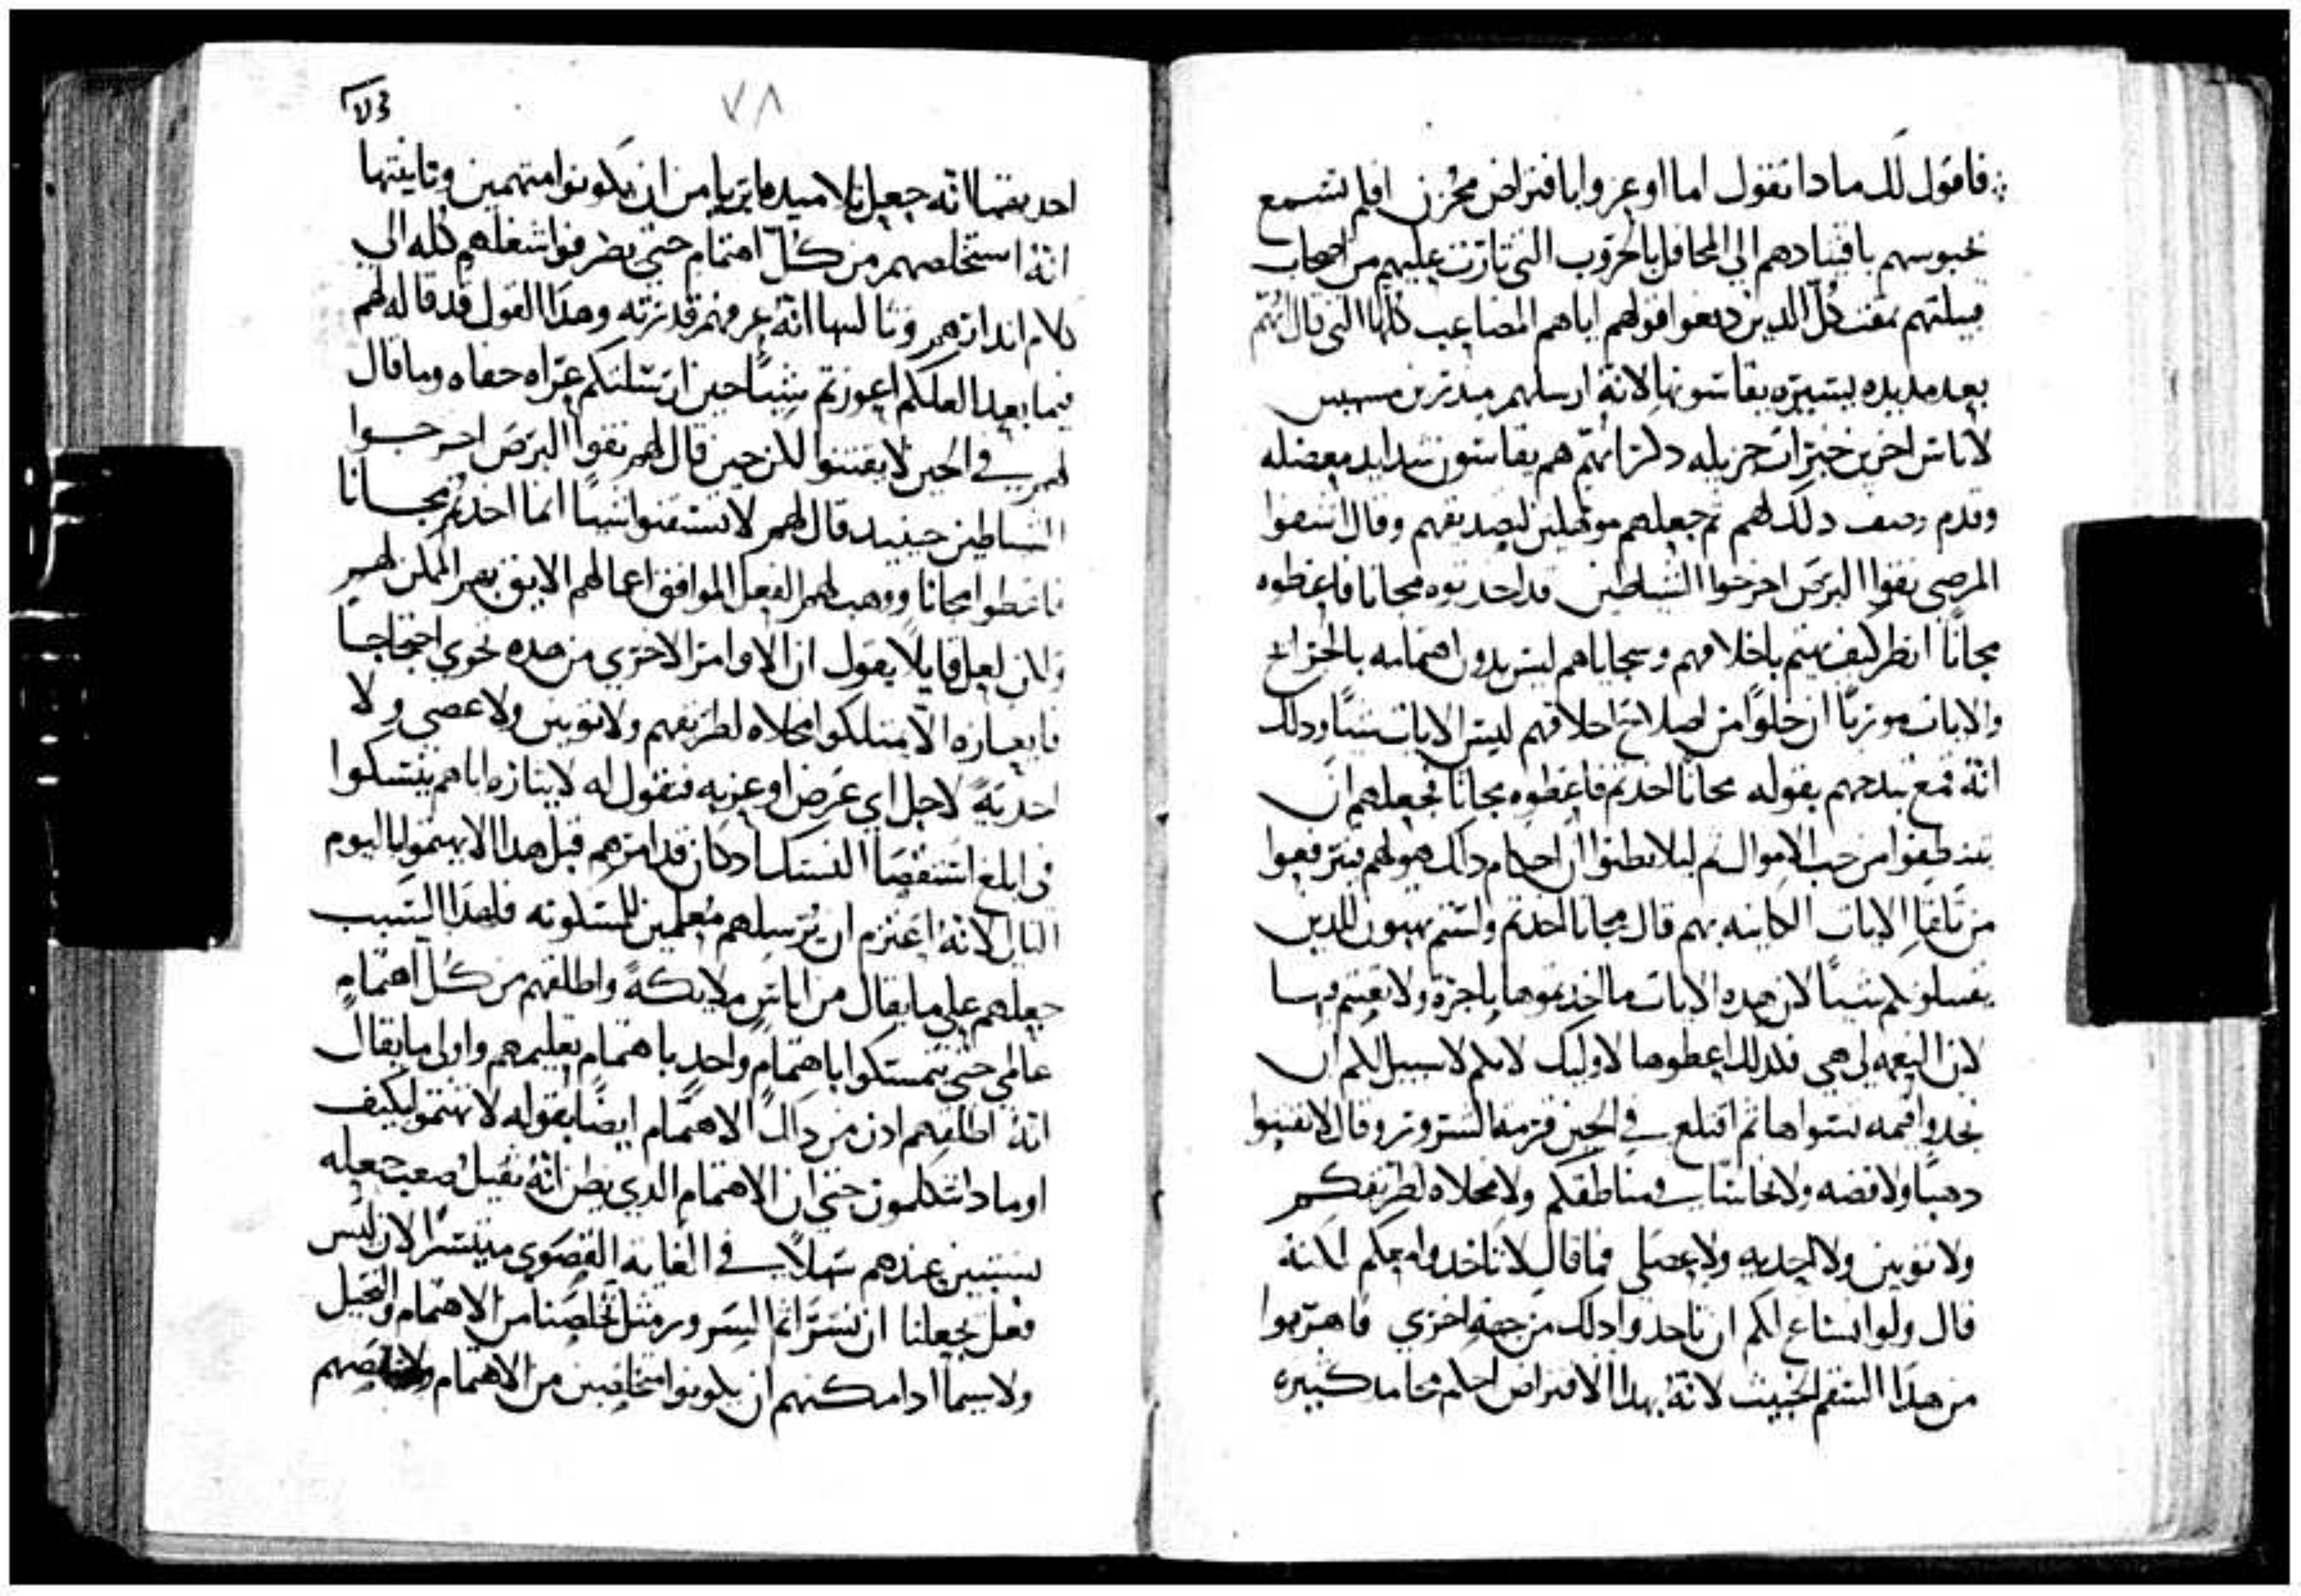 فاقول لك ماذا تقول اما اوعزوا بافتراض محزن افلم تسمع
حبوسهم باقتيادهم الي المحافل بالحروب التي ثارت عليهم من اصحاب
قبيلتهم بمقت كل الذين دفعوا قولهم اياهم المصاعب كلها التي قال انهم
بعد مديده يسيره يقاسونها لانه ارسلهم
لاناس اخرين خيرات جزيله ذكر انهم هم يقاسون شدايد معضله
وقدم وصف ذلك لهم ثم جعلهم موهلين لتصديقهم وقال اشفوا
المرضي نقوا البرص اخرجوا الشياطين قد اخذتموه مجانا فاعطوه
مجانا انظر كيف يهتم باخلاقهم وسجاياهم ليس بدون اهتمامه بالجرائح
والايات موريا ان خلوا من اصلاح اخلاقهم ليس الايات شيا وذلك
انه قمع بذخهم بقوله مجانا اخذتم فاعطوه مجانا فجعلهم ان
يتنظفوا من حب الاموال ثم ليلا يظنوا ان احكام ذلك هو لهم فيترفعوا
من تلقا الايات الكاينه بهم قال مجانا اخذتم ولستم تهبون للذين
يقبلونكم شيا لان هذه الايات ما اخذتموها باجرة ولا تعبتم فيها
لان النعمه لي هي فلذلك اعطوها لاوليك لانكم لا سبيل لكم ان
تجدوا قيمه تسواها ثم اقتلع في الحين قرمة الشرور وقال لا تقتنوا
ذهبا ولا فضه ولا نحاسا في مناطقكم ولا مخلاه لطريقكم
ولا ثوبين ولا احذيه ولا عصي فما قال لا تاخذوا معكم لكنه
قال ولو انساع لكم ان تاخذوا ذلك من جهه اخري فاهربوا
من هذا السقم الخبيث لانه بهذا الافتراض احكم محامد كثيره
٧٨
احديهما انه جعل تلاميذه ما بريا من ان يكونوا متهمين وثانيتها
انه استخلصهم من كل اهتمام حتي يصرفوا شغلهم كله الي
كلام انذارهم وثالثها انه عرفهم قدرته وهذا القول قد قاله لهم
فيما بعد العلكم اعوزتم شيا حين ارسلتكم عراه حفاه وما قال
لهم في الحين لا تقتنوا لكن حين قال لهم نقوا البرص اخرجوا
الشياطين حينيذ قال لهم لا تستقنوا شيا انما اخذتم مجانا
فاعطوا مجانا ووهب لهم الفعل الموافق اعمالهم الايق بهم الممكن لهم
ولكن لعل قايلا يقول ان الاوامر الاخري من هذه تحوي احتجاجا
فايعازه الا يمتلكوا مخلاه لطريقهم ولا ثوبين ولا عصي ولا
احذيةً لاجل اي غرض اوعز به فنقول له لايثاره اياهم يتنسكوا
في ابلغ استقصا النسك اذ كان قد امرهم قبل هذا الا يهتموا باليوم
التالي لانه اعتزم ان يرسلهم معلمين للمسكونه فلهذا السبب
جعلهم علي ما يقال من اناس ملايكةً واطلقهم من كل اهتمام
عالمي حتي يتمسكوا باهتمام واحد باهتمام تعليمهم واولي ما يقال
انه اطلقهم اذن من ذاك الاهتمام ايضا بقوله لا تهتموا كيف
او ماذا تتكلمون حتي ان الاهتمام الذي يظن انه ثقيل صعب جعله
يستبين عندهم سهلا في الغاية القصوي متيسرا لان ليس
فعل يجعلنا ان نسر اتم السرور مثل تخلصنا من الاهتمام والتخيل
ولا سيما اذا امكنهم ان يكونوا متخلصين من الاهتمام